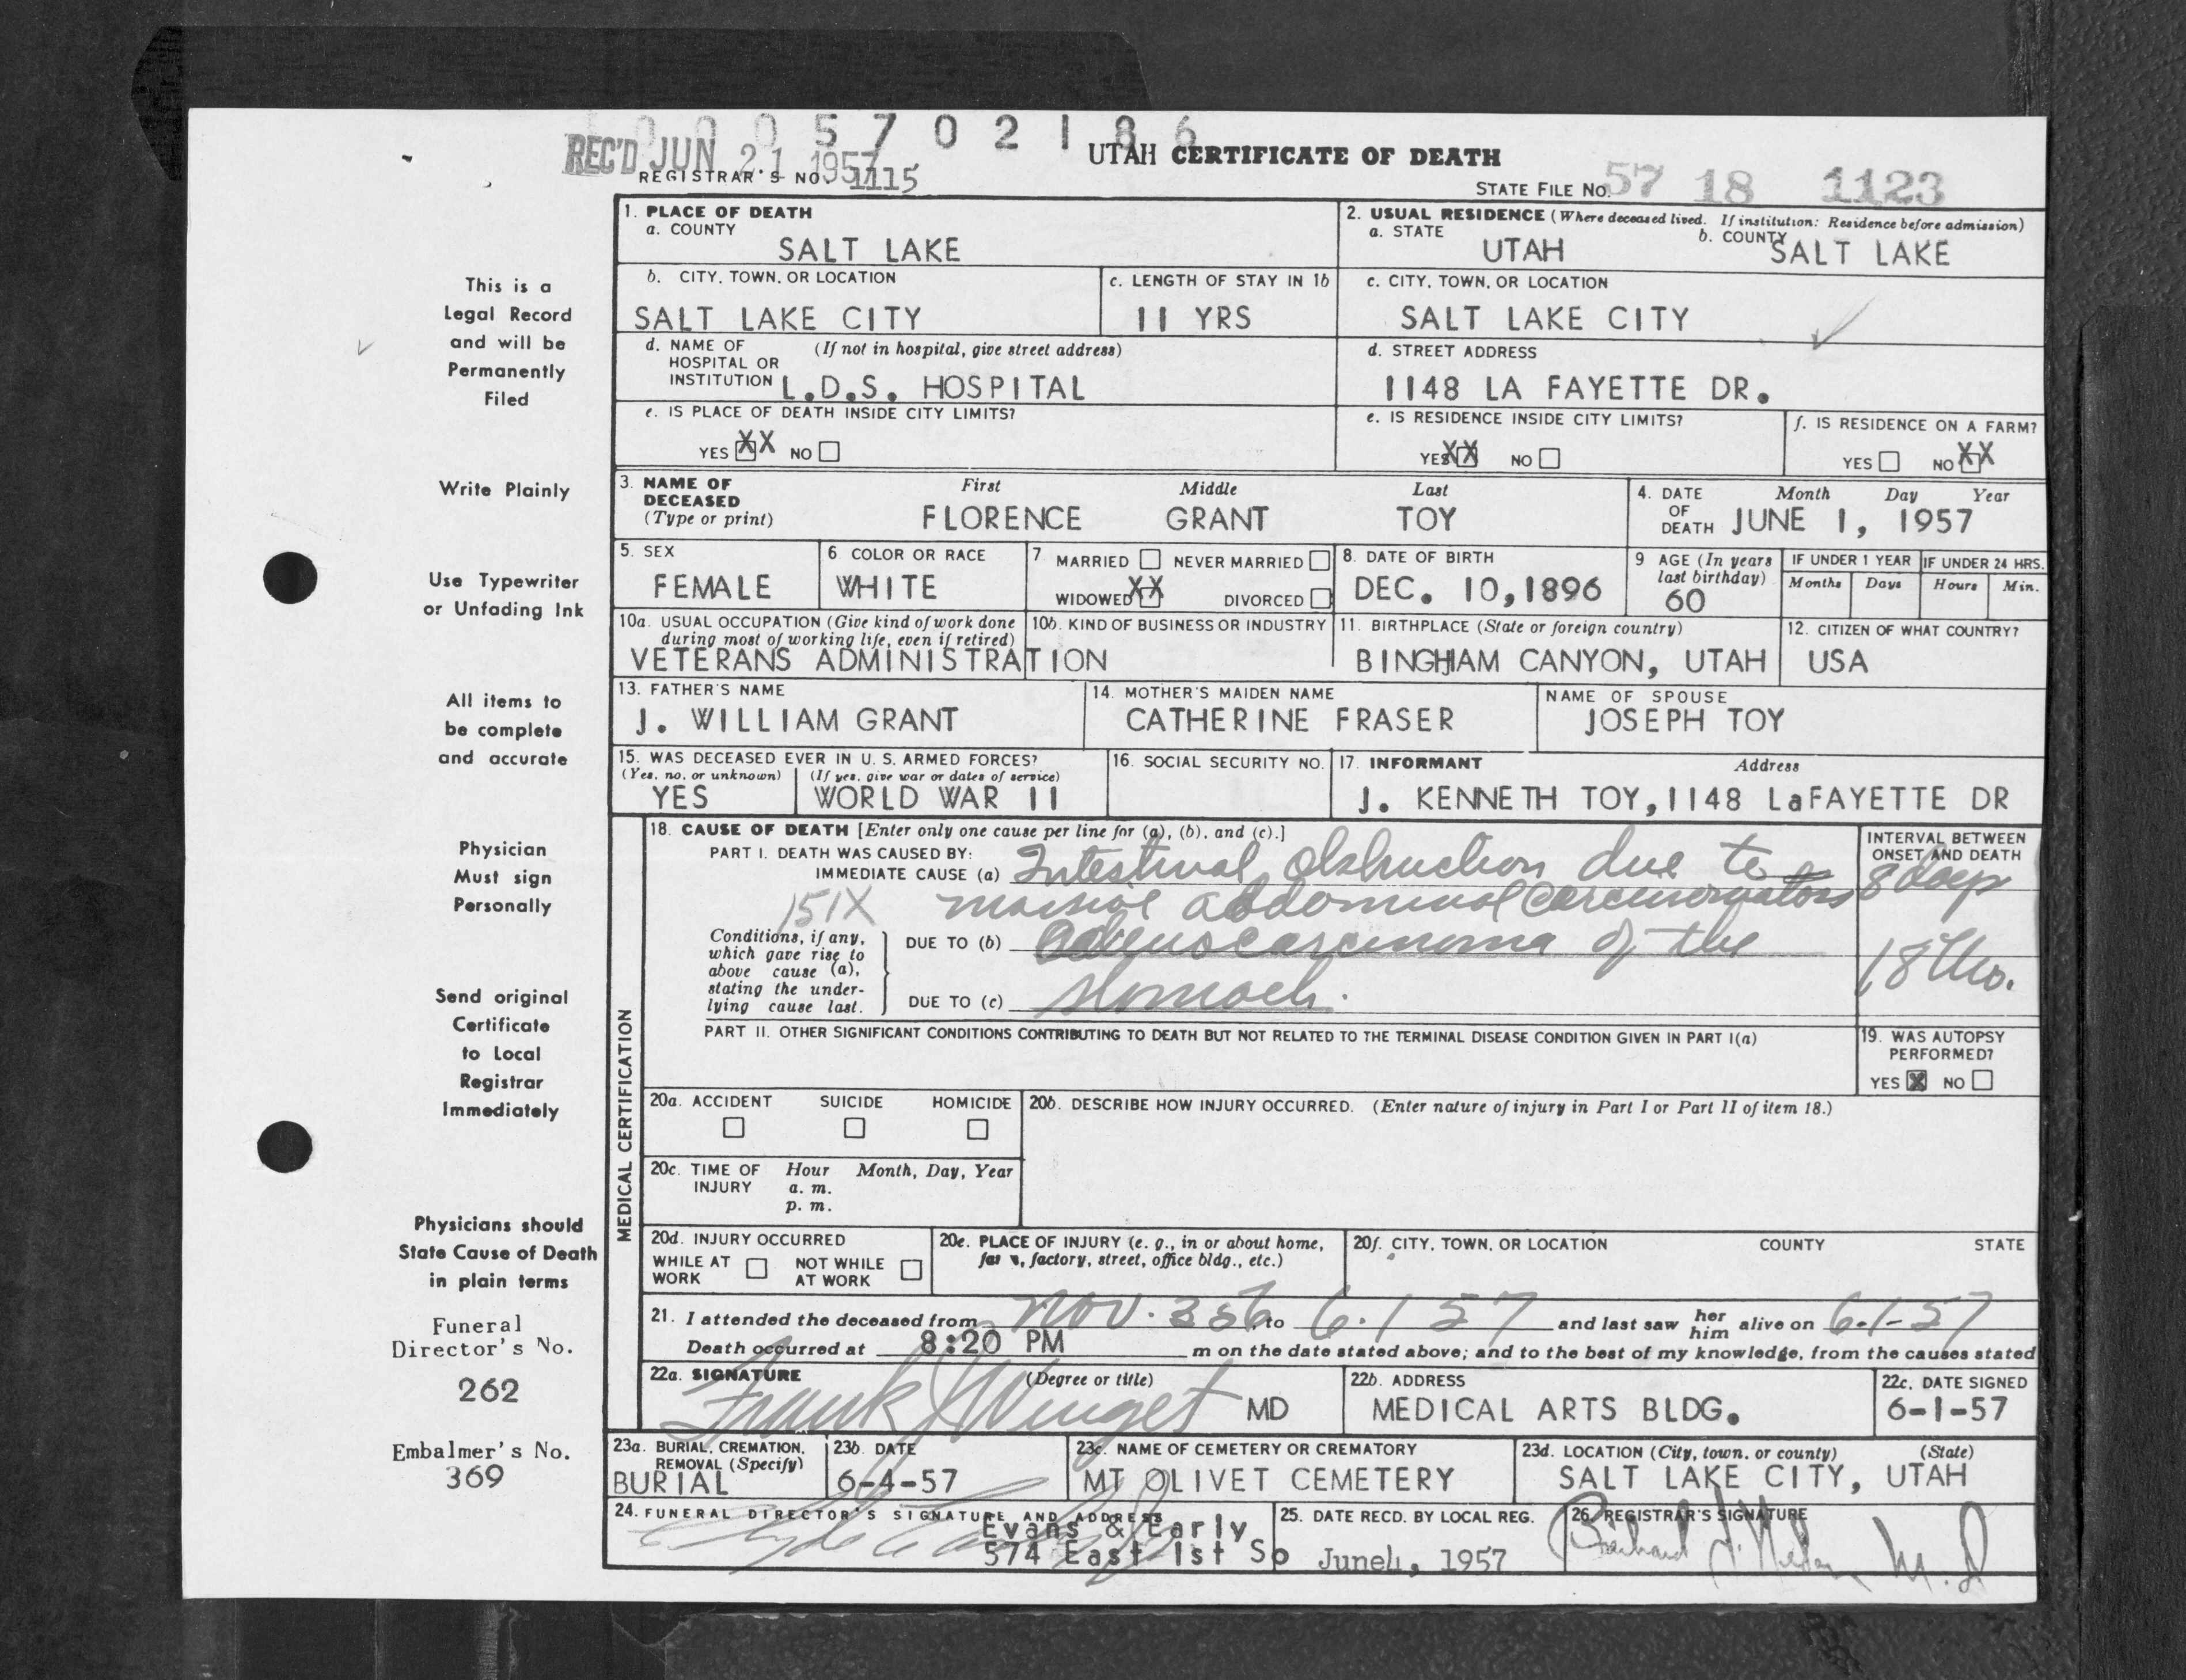 0005702186
REC'D JUN 21 1957
UTAH CERTIFICATE OF DEATH
REGISTRAR'S NO. 1115
STATE FILE NO. 57 18 1123
1. PLACE OF DEATH
a. COUNTY
SALT LAKE
2. USUAL RESIDENCE (Where deceased lived. If institution: Residence before admission)
a. STATE UTAH b. COUNTY SALT LAKE
b. CITY, TOWN, OR LOCATION
SALT LAKE CITY
c. LENGTH OF STAY IN 1b
11 YRS
c. CITY, TOWN, OR LOCATION
SALT LAKE CITY
d. NAME OF HOSPITAL OR INSTITUTION (If not in hospital, give street address)
L.D.S. HOSPITAL
d. STREET ADDRESS
1148 LA FAYETTE DR.
e. IS PLACE OF DEATH INSIDE CITY LIMITS?
YES XX NO
e. IS RESIDENCE INSIDE CITY LIMITS?
YES XX NO
f. IS RESIDENCE ON A FARM?
YES NO XX
3. NAME OF DECEASED (Type or print)
First Middle Last
FLORENCE GRANT TOY
4. DATE OF DEATH Month Day Year
JUNE 1, 1957
5. SEX
FEMALE
6 COLOR OR RACE
WHITE
7. MARRIED NEVER MARRIED
WIDOWED XX DIVORCED
8. DATE OF BIRTH
DEC. 10,1896
9 AGE (In years last birthday)
60
IF UNDER 1 YEAR
Months Days
IF UNDER 24 HRS.
Hours Min.
10a. USUAL OCCUPATION (Give kind of work done during most of working life, even if retired)
VETERANS ADMINISTRATION
10b. KIND OF BUSINESS OR INDUSTRY
11. BIRTHPLACE (State or foreign country)
BINGHAM CANYON, UTAH
12. CITIZEN OF WHAT COUNTRY?
USA
13. FATHER'S NAME
J. WILLIAM GRANT
14. MOTHER'S MAIDEN NAME
CATHERINE FRASER
NAME OF SPOUSE
JOSEPH TOY
15. WAS DECEASED EVER IN U. S. ARMED FORCES?
(Yes, no, or unknown) (If yes, give war or dates of service)
YES WORLD WAR 11
16. SOCIAL SECURITY NO.
17. INFORMANT Address
J. KENNETH TOY,1148 LaFAYETTE DR
MEDICAL CERTIFICATION
18. CAUSE OF DEATH [Enter only one cause per line for (a), (b), and (c).]
PART I. DEATH WAS CAUSED BY:
IMMEDIATE CAUSE (a) Intestinal Obstruction due to
massive abdominal carcinomatosis
151X
INTERVAL BETWEEN ONSET AND DEATH
8 days
Conditions, if any, which gave rise to above cause (a), stating the underlying cause last.
DUE TO (b) Adenocarcinoma of the
DUE TO (c) stomach.
18 Mo.
PART II. OTHER SIGNIFICANT CONDITIONS CONTRIBUTING TO DEATH BUT NOT RELATED TO THE TERMINAL DISEASE CONDITION GIVEN IN PART I(a)
19. WAS AUTOPSY PERFORMED?
YES X NO
20a. ACCIDENT SUICIDE HOMICIDE
20b. DESCRIBE HOW INJURY OCCURRED. (Enter nature of injury in Part I or Part II of item 18.)
20c. TIME OF INJURY Hour Month, Day, Year
a. m.
p. m.
20d. INJURY OCCURRED
WHILE AT WORK NOT WHILE AT WORK
20e. PLACE OF INJURY (e. g., in or about home, farm, factory, street, office bldg., etc.)
20f. CITY, TOWN, OR LOCATION COUNTY STATE
21. I attended the deceased from Nov. 3 56 to 6.1 57 and last saw her him alive on 6-1-57
Death occurred at 8:20 PM m on the date stated above; and to the best of my knowledge, from the causes stated
22a. SIGNATURE (Degree or title)
Frank J Winget MD
22b. ADDRESS
MEDICAL ARTS BLDG.
22c. DATE SIGNED
6-1-57
23a. BURIAL, CREMATION, REMOVAL (Specify)
BURIAL
23b. DATE
6-4-57
23c. NAME OF CEMETERY OR CREMATORY
MT OLIVET CEMETERY
23d. LOCATION (City, town, or county) (State)
SALT LAKE CITY, UTAH
24. FUNERAL DIRECTOR'S SIGNATURE AND ADDRESS
Evans & Early
574 East 1st So
25. DATE RECD. BY LOCAL REG.
June4, 1957
26. REGISTRAR'S SIGNATURE
M.D
This is a
Legal Record
and will be
Permanently
Filed
Write Plainly
Use Typewriter
or Unfading Ink
All items to
be complete
and accurate
Physician
Must sign
Personally
Send original
Certificate
to Local
Registrar
Immediately
Physicians should
State Cause of Death
in plain terms
Funeral
Director's No.
262
Embalmer's No.
369